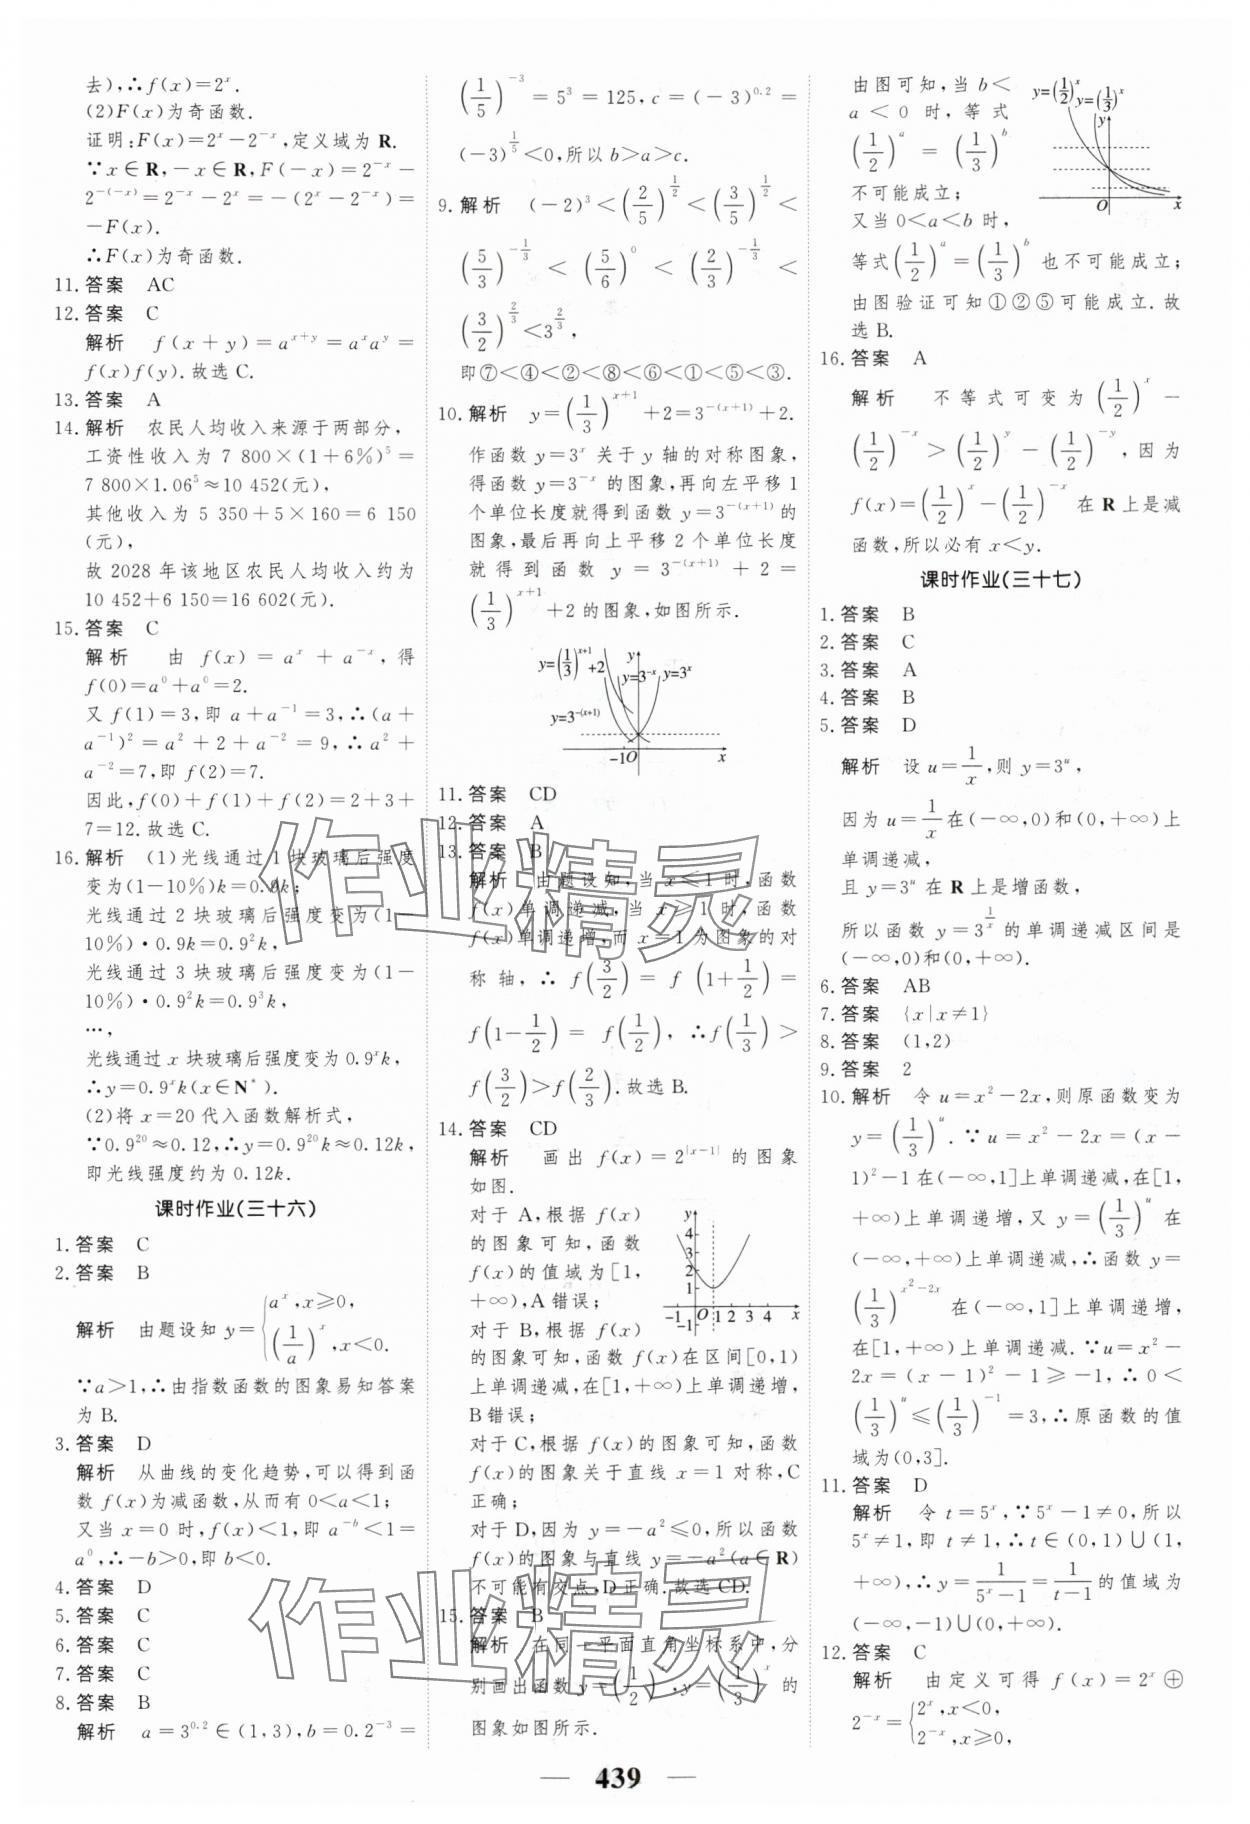 去),∴f(x)=2^x.
(2)F(x)为奇函数.
证明:F(x)=2^x-2^{-x},定义域为 R.
∵x∈R,-x∈R,F(-x)=2^{-x}-
2^{-(-x)}=2^{-x}-2^x=-(2^x-2^{-x})=
-F(x).
∴F(x)为奇函数.
11.答案 AC
12.答案 C
解析 f(x+y)=a^{x+y}=a^x a^y=
f(x)f(y).故选 C.
13.答案 A
14.解析 农民人均收入来源于两部分,
工资性收入为 7 800×(1+6%)^5=
7 800×1.06^5≈10 452(元),
其他收入为 5 350+5×160=6 150
(元),
故 2028 年该地区农民人均收入约为
10 452+6 150=16 602(元).
15.答案 C
解析 由 f(x)=a^x+a^{-x},得
f(0)=a^0+a^0=2.
又 f(1)=3,即 a+a^{-1}=3,∴(a+
a^{-1})^2=a^2+2+a^{-2}=9,∴a^2+
a^{-2}=7,即 f(2)=7.
因此,f(0)+f(1)+f(2)=2+3+
7=12.故选 C.
16.解析 (1)光线通过 1 块玻璃后强度
变为(1-10%)k=0.9k;
光线通过 2 块玻璃后强度变为(1-
10%)·0.9k=0.9^2k,
光线通过 3 块玻璃后强度变为(1-
10%)·0.9^2k=0.9^3k,
…,
光线通过 x 块玻璃后强度变为 0.9^xk,
∴y=0.9^xk(x∈N^*).
(2)将 x=20 代入函数解析式,
∵0.9^{20}≈0.12,∴y=0.9^{20}k≈0.12k,
即光线强度约为 0.12k.
课时作业(三十六)
1.答案 C
2.答案 B
解析 由题设知 y={a^x,x≥0, (1/a)^x,x<0.
∵a>1,∴由指数函数的图象易知答案
为 B.
3.答案 D
解析 从曲线的变化趋势,可以得到函
数 f(x)为减函数,从而有 0<a<1;
又当 x=0 时,f(x)<1,即 a^{-b}<1=
a^0,∴-b>0,即 b<0.
4.答案 D
5.答案 C
6.答案 C
7.答案 C
8.答案 B
解析 a=3^{0.2}∈(1,3),b=0.2^{-3}=
(1/5)^{-3}=5^3=125,c=(-3)^{0.2}=
(-3)^{1/5}<0,所以 b>a>c.
9.解析 (-2)^3<(2/5)^{1/2}<(3/5)^{1/2}<
(5/3)^{-1/3}<(5/6)^0<(2/3)^{-1/3}<
(3/2)^{2/3}<3^{2/3},
即⑦<④<②<⑧<⑥<①<⑤<③.
10.解析 y=(1/3)^{x+1}+2=3^{-(x+1)}+2.
作函数 y=3^x 关于 y 轴的对称图象,
得函数 y=3^{-x} 的图象,再向左平移 1
个单位长度就得到函数 y=3^{-(x+1)} 的
图象,最后再向上平移 2 个单位长度
就得到函数 y=3^{-(x+1)}+2=
(1/3)^{x+1}+2 的图象,如图所示.
y=(1/3)^{x+1}+2 y y=3^{-x} y=3^x
y=3^{-(x+1)}
-1 O x
11.答案 CD
12.答案 A
13.答案 B
解析 由题设知,当 x≤1 时,函数
f(x)单调递减,当 x≥1 时,函数
f(x)单调递增,而 x=1 为图象的对
称轴,∴f(3/2)=f(1+1/2)=
f(1-1/2)=f(1/2),∴f(1/3)>
f(3/2)>f(2/3).故选 B.
14.答案 CD
解析 画出 f(x)=2^{|x-1|} 的图象
如图.
对于 A,根据 f(x)
的图象可知,函数
f(x)的值域为[1,
+∞),A 错误;
对于 B,根据 f(x)
y 4 3 2 1 -1 O 1 2 3 4 x -1
的图象可知,函数 f(x)在区间[0,1)
上单调递减,在[1,+∞)上单调递增,
B 错误;
对于 C,根据 f(x)的图象可知,函数
f(x)的图象关于直线 x=1 对称,C
正确;
对于 D,因为 y=-a^2≤0,所以函数
f(x)的图象与直线 y=-a^2(a∈R)
不可能有交点,D 正确.故选 CD.
15.答案 B
解析 在同一平面直角坐标系中,分
别画出函数 y=(1/2)^x,y=(1/3)^x 的
图象如图所示.
由图可知,当 b<
a<0 时,等式
(1/2)^a=(1/3)^b
不可能成立;
y=(1/2)^x y=(1/3)^x y O x
又当 0<a<b 时,
等式(1/2)^a=(1/3)^b 也不可能成立;
由图验证可知①②⑤可能成立.故
选 B.
16.答案 A
解析 不等式可变为(1/2)^x-
(1/2)^{-x}>(1/2)^y-(1/2)^{-y},因为
f(x)=(1/2)^x-(1/2)^{-x} 在 R 上是减
函数,所以必有 x<y.
课时作业(三十七)
1.答案 B
2.答案 C
3.答案 A
4.答案 B
5.答案 D
解析 设 u=1/x,则 y=3^u,
因为 u=1/x 在(-∞,0)和(0,+∞)上
单调递减,
且 y=3^u 在 R 上是增函数,
所以函数 y=3^{1/x} 的单调递减区间是
(-∞,0)和(0,+∞).
6.答案 AB
7.答案 {x|x≠1}
8.答案 (1,2)
9.答案 2
10.解析 令 u=x^2-2x,则原函数变为
y=(1/3)^u.∵u=x^2-2x=(x-
1)^2-1 在(-∞,1]上单调递减,在[1,
+∞)上单调递增,又 y=(1/3)^u 在
(-∞,+∞)上单调递减,∴函数 y=
(1/3)^{x^2-2x} 在(-∞,1]上单调递增,
在[1,+∞)上单调递减.∵u=x^2-
2x=(x-1)^2-1≥-1,∴0<
(1/3)^u≤(1/3)^{-1}=3,∴原函数的值
域为(0,3].
11.答案 D
解析 令 t=5^x,∵5^x-1≠0,所以
5^x≠1,即 t≠1,∴t∈(0,1)∪(1,
+∞),∴y=1/(5^x-1)=1/(t-1)的值域为
(-∞,-1)∪(0,+∞).
12.答案 C
解析 由定义可得 f(x)=2^x⊕
2^{-x}={2^x,x<0, 2^{-x},x≥0,
439
作业精灵
作业精灵